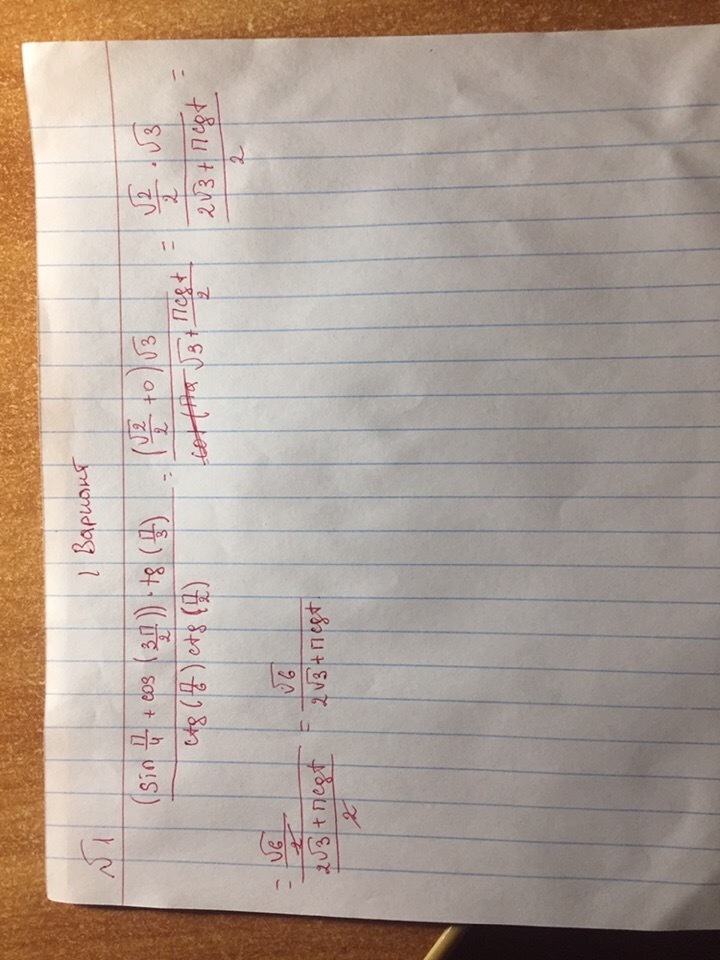 1 Вариант
√1
(sin π/4 + cos (3π/2)) · tg (π/3) / ctg (π/6) ctg (π/2) = (√2/2 + 0) √3 / √3 + πcgt/2 = √2/2 · √3 / (2√3 + πcgt)/2 =
= √6/2 / (2√3 + πcgt)/2 = √6 / 2√3 + πcgt